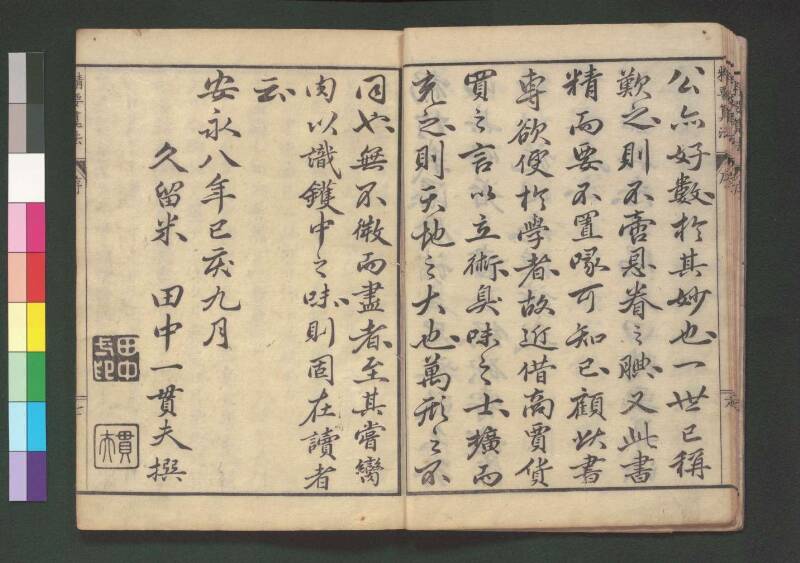 公亦好數於其妙也一世已稱
歎之則不啻恩眷之腆又此書
精而要不置喙可知已顧此書
専欲便於學者故近借商賈貨
買之言以立術臭味之士擴而
充之則天地之大也萬形之不
同也無不徴而盡者至其嘗臠
肉以識鑊中之味則固在讀者
云
安永八年己亥九月
久留米 田中一貫夫撰
精要算法
序